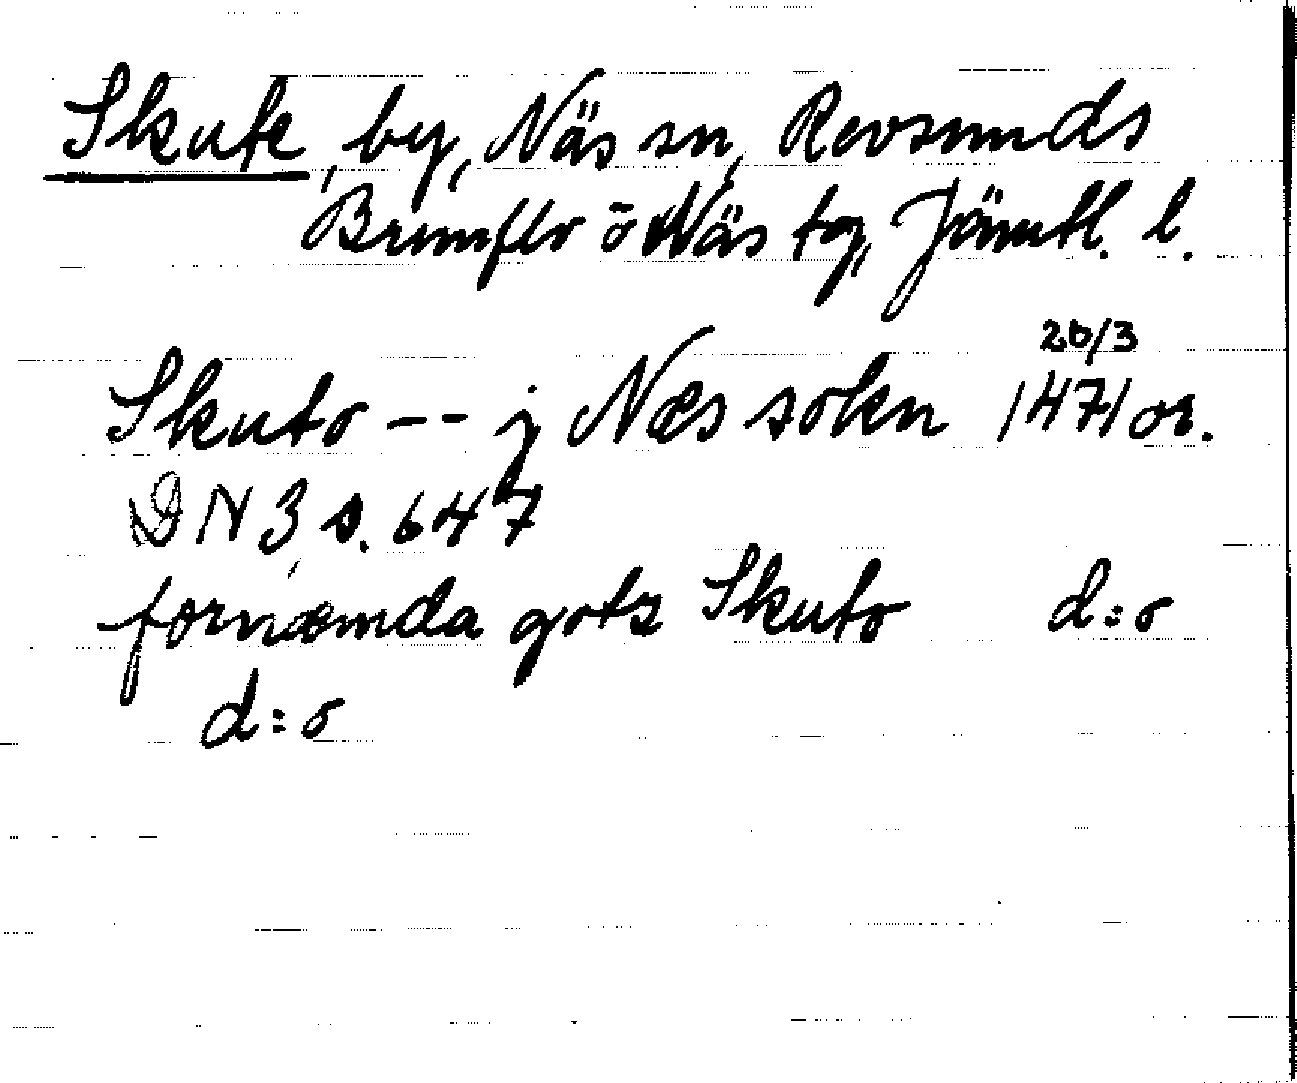 Skute, by, Näs sn, Revsunds
Brunflo o Näs tg, Jämtl. l.
20/3
Skuto -- j Næs sokn 1471 or.
DN 3 s. 647
fornæmda gotz Skuto d:o
d:o